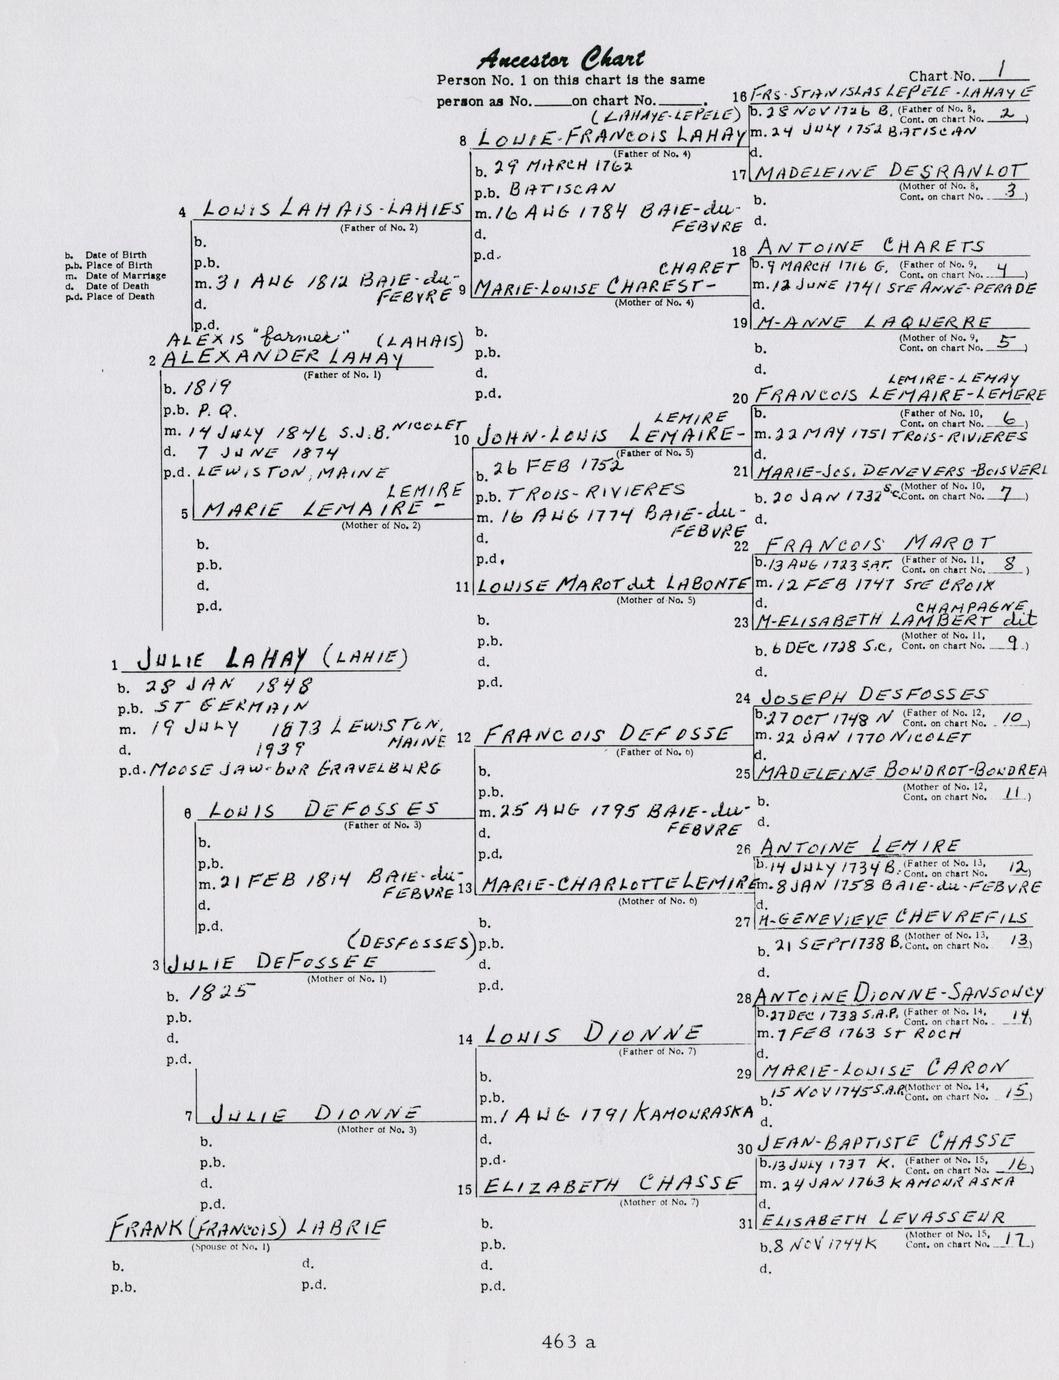 Ancestor Chart
Person No. 1 on this chart is the same
person as No. on chart No. .
Chart No. 1
b. Date of Birth
p.b. Place of Birth
m. Date of Marriage
d. Date of Death
p.d. Place of Death
1 JULIE LAHAY (LAHIE)
b. 28 JAN 1848
p.b. ST GERMAIN
m. 19 JULY 1873 LEWISTON,
MAINE
d. 1939
p.d. MOOSE JAW-bur GRAVELBURG
ALEXIS "farmer" (LAHAIS)
2 ALEXANDER LAHAY
(Father of No. 1)
b. 1819
p.b. P.Q.
m. 14 JULY 1846 S.J.B. NICOLET
d. 7 JUNE 1874
p.d. LEWISTON, MAINE
(DESFOSSES)
3 JULIE DEFOSSEE
(Mother of No. 1)
b. 1825
p.b.
d.
p.d.
4 LOUIS LAHAIS-LAHIES
(Father of No. 2)
b.
p.b.
m. 31 AUG 1812 BAIE-du-
FEBVRE
d.
p.d.
LEMIRE
5 MARIE LEMAIRE-
(Mother of No. 2)
b.
p.b.
d.
p.d.
6 LOUIS DEFOSSES
(Father of No. 3)
b.
p.b.
m. 21 FEB 1814 BAIE-du-
FEBVRE
d.
p.d.
7 JULIE DIONNE
(Mother of No. 3)
b.
p.b.
d.
p.d.
FRANK (FRANCOIS) LABRIE
(Spouse of No. 1)
b. d.
p.b. p.d.
(LAHAYE-LEPELE)
8 LOUIE-FRANCOIS LAHAY
(Father of No. 4)
b. 29 MARCH 1762
p.b. BATISCAN
m. 16 AUG 1784 BAIE-du-
FEBVRE
d.
p.d.
CHARET
9 MARIE-LOUISE CHAREST-
(Mother of No. 4)
b.
p.b.
d.
p.d.
LEMIRE
10 JOHN-LOUIS LEMAIRE-
(Father of No. 5)
b. 26 FEB 1752
p.b. TROIS-RIVIERES
m. 16 AUG 1774 BAIE-du-
FEBVRE
d.
p.d.
11 LOUISE MAROT dit LABONTE
(Mother of No. 5)
b.
p.b.
d.
p.d.
12 FRANCOIS DEFOSSE
(Father of No. 6)
b.
p.b.
m. 25 AUG 1795 BAIE-du-
FEBVRE
d.
p.d.
13 MARIE-CHARLOTTE LEMIRE
(Mother of No. 6)
b.
p.b.
d.
p.d.
14 LOUIS DIONNE
(Father of No. 7)
b.
p.b.
m. 1 AUG 1791 KAMOURASKA
d.
p.d.
15 ELIZABETH CHASSE
(Mother of No. 7)
b.
p.b.
d.
p.d.
16 FRS-STANISLAS LEPELE-LAHAYE
b. 28 NOV 1726 B. (Father of No. 8,
Cont. on chart No. 2)
m. 24 JULY 1752 BATISCAN
d.
17 MADELEINE DESRANLOT
(Mother of No. 8,
Cont. on chart No. 3)
b.
d.
18 ANTOINE CHARETS
b. 9 MARCH 1716 G. (Father of No. 9,
Cont. on chart No. 4)
m. 12 JUNE 1741 STE ANNE-PERADE
d.
19 M-ANNE LAQUERRE
(Mother of No. 9,
Cont. on chart No. 5)
b.
d.
LEMIRE-LEMAY
20 FRANCOIS LEMAIRE-LEMERE
b. (Father of No. 10,
Cont. on chart No. 6)
m. 22 MAY 1751 TROIS-RIVIERES
d.
21 MARIE-Jos. DENEVERS-BOISVERL
b. 20 JAN 1732 S.C. (Mother of No. 10,
Cont. on chart No. 7)
d.
22 FRANCOIS MAROT
b. 13 AUG 1723 S.A.T. (Father of No. 11,
Cont. on chart No. 8)
m. 12 FEB 1747 STE CROIX
d.
CHAMPAGNE
23 M-ELISABETH LAMBERT dit
(Mother of No. 11,
b. 6 DEC 1728 S.C, Cont. on chart No. 9)
d.
24 JOSEPH DESFOSSES
b. 27 OCT 1748 N (Father of No. 12,
Cont. on chart No. 10)
m. 22 JAN 1770 NICOLET
d.
25 MADELEINE BOUDROT-BOUDREA
(Mother of No. 12,
Cont. on chart No. 11)
b.
d.
26 ANTOINE LEMIRE
b. 14 JULY 1734 B. (Father of No. 13,
Cont. on chart No. 12)
m. 8 JAN 1758 BAIE-du-FEBVRE
d.
27 M-GENEVIEVE CHEVREFILS
b. 21 SEPT 1738 B. (Mother of No. 13,
Cont. on chart No. 13)
d.
28 ANTOINE DIONNE-SANSOUCY
b. 27 DEC 1738 S.A.P. (Father of No. 14,
Cont. on chart No. 14)
m. 7 FEB 1763 ST ROCH
d.
29 MARIE-LOUISE CARON
b. 15 NOV 1745 S.A.P. (Mother of No. 14,
Cont. on chart No. 15)
d.
30 JEAN-BAPTISTE CHASSE
b. 13 JULY 1737 K. (Father of No. 15,
Cont. on chart No. 16)
m. 24 JAN 1763 KAMOURASKA
d.
31 ELISABETH LEVASSEUR
b. 8 NOV 1744 K (Mother of No. 15,
Cont. on chart No. 17)
d.
463 a